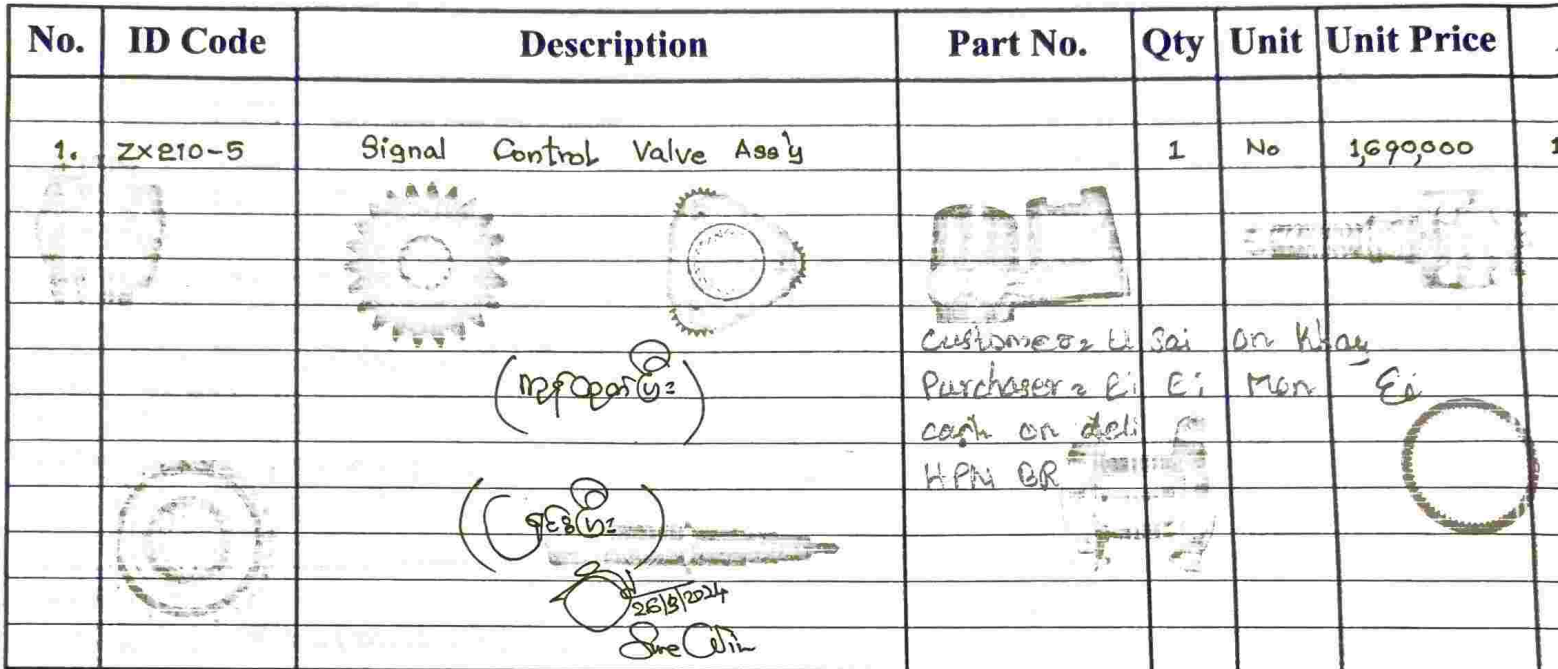 No. ID Code Description Part No. Qty Unit Unit Price
1. ZX210-5 Signal Control Valve Ass'y 1 No 1,690,000 1
Customer: U Sai On Khay
Purchaser: Ei Ei Mon Ei
cash on deli
HPN BR
26/3/2024